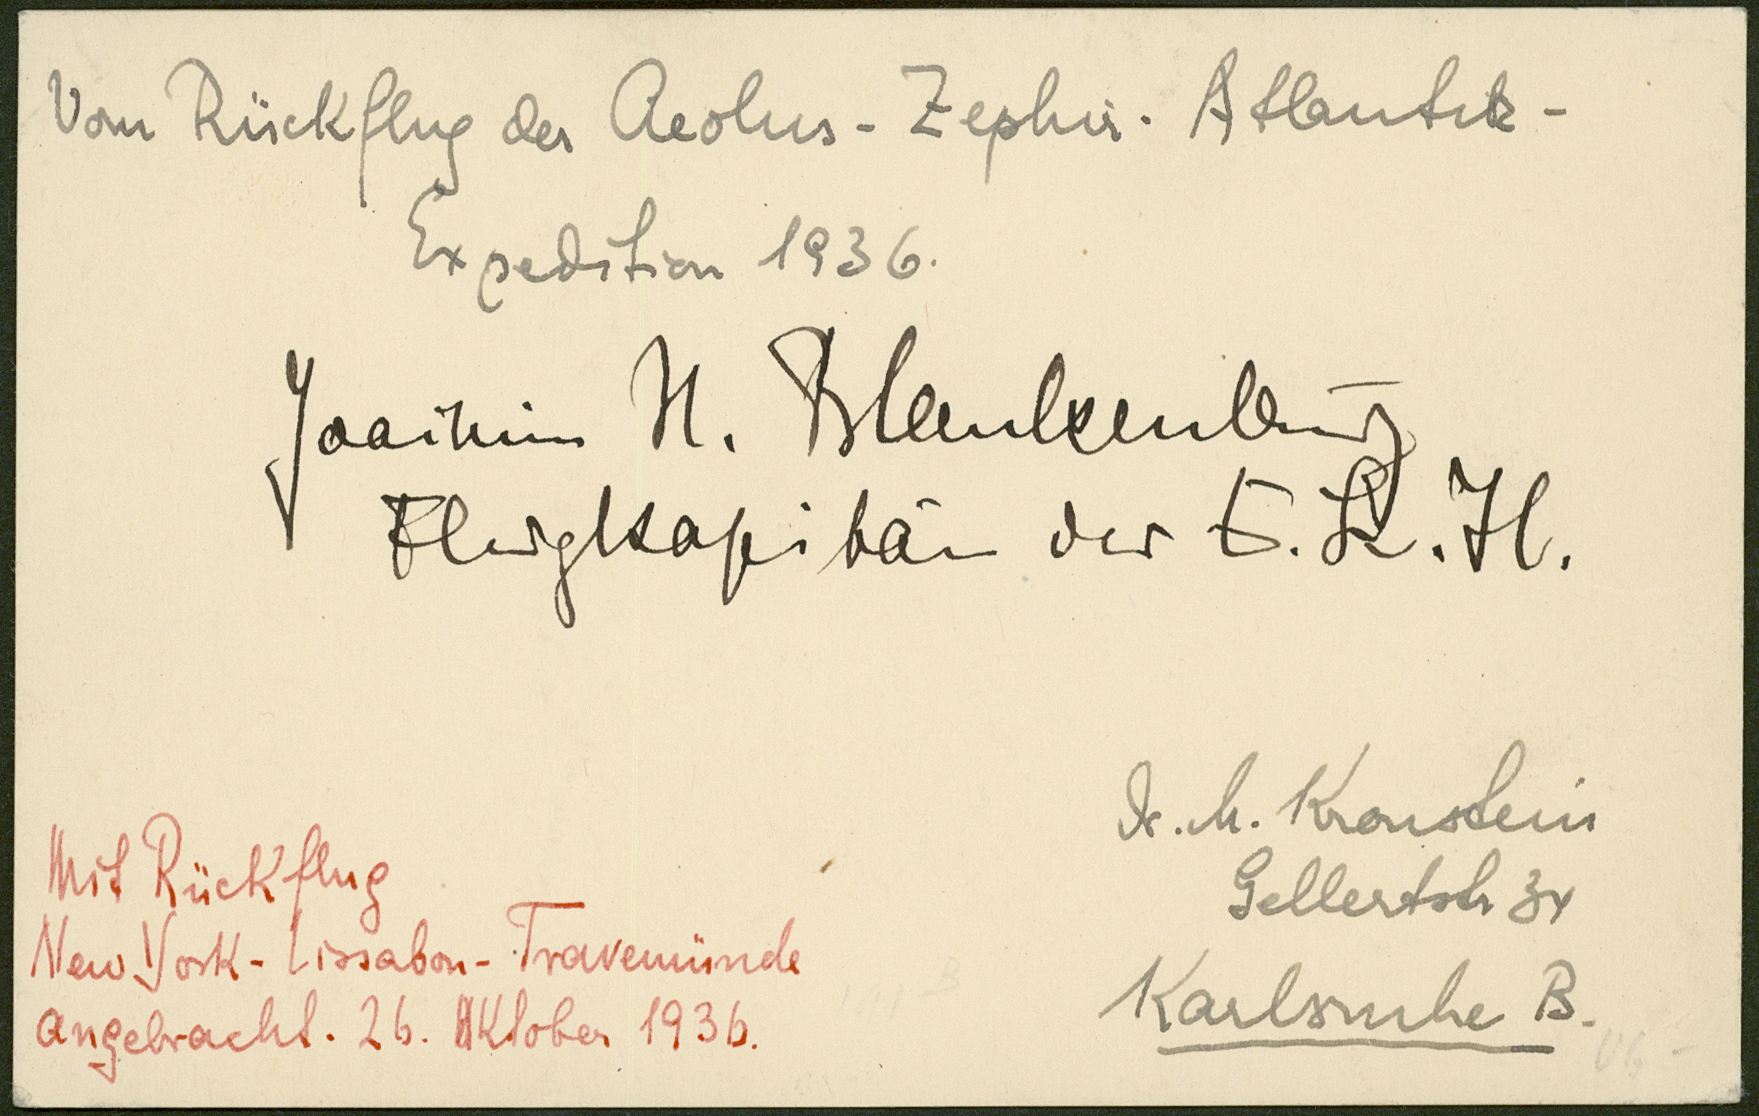 Vom Rückflug der Aeolus - Zephir - Atlantik -
Expedition 1936.
Joachim H. Blankenburg
Flugkapitän der D.L.H.
Dr. M. Kronstein
Gellertstr
Karlsruhe B.
Mit Rückflug
New York - Lissabon - Travemünde
angebracht. 26. Oktober 1936.